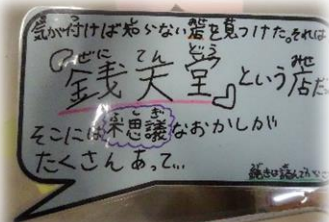 気が付けば知らない店を見つけた。それは
『銭天堂』という店だっ
そこには不思議なおかしが
たくさんあって…
続きは読んでみてね